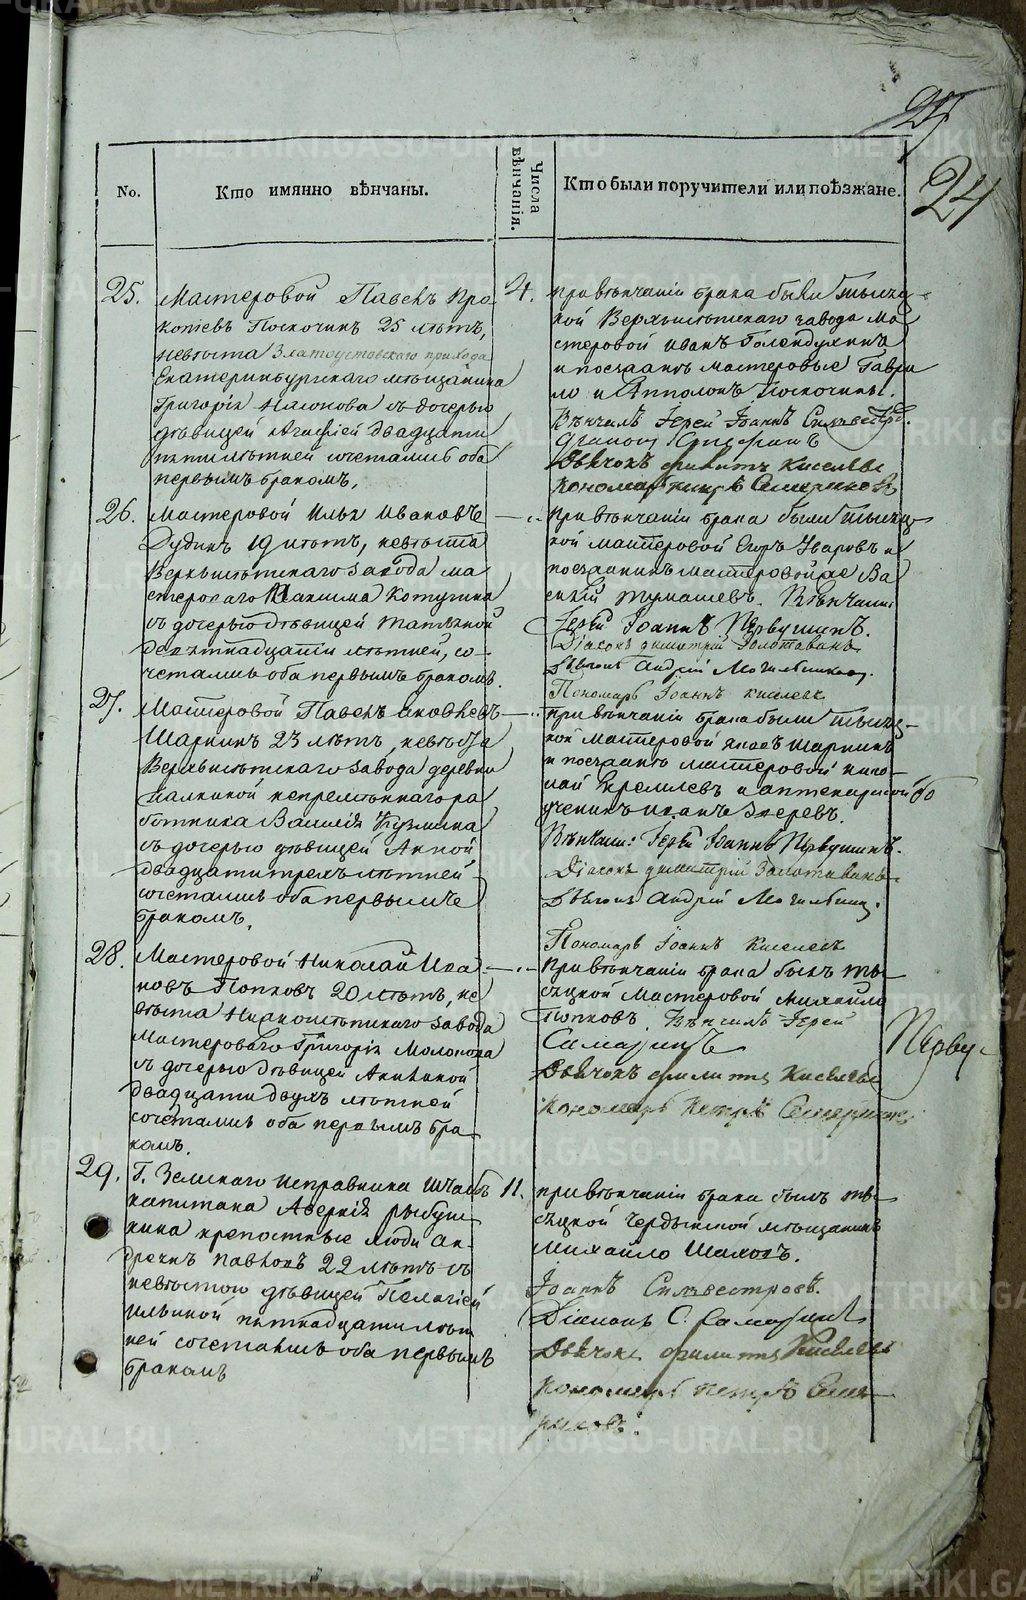 24
No.
Кто имянно вѣнчаны.
Числа вѣнчанія.
Кто были поручители или поѣзжане.
25.
Мастеровой Павелъ Про
копіевъ Поскочинъ 25 лѣтъ,
невѣста Златоустовскаго прихода
Екатеринбургскаго мѣщанина
Григорія съ дочерью
дѣвицей двадцати
пятилѣтней сочетались оба
первымъ бракомъ.
4.
при вѣнчаніи брака были тысяц
кой Верхъисетскаго завода ма
стеровой Иванъ Голендухинъ
и поезжаня мастеровые Гаври
ло и Апполонъ Поскочины.
Вѣнчалъ Іерей Іоаннъ Сильвестро
Дьячокъ Филиппъ Киселевъ
Пономарь Петръ
26.
Мастеровой Илья Ивановъ
Дудинъ 19 лѣтъ, невѣста
Верхъисетскаго завода ма
стероваго Котугина
съ дочерью дѣвицей Татьяной
девятнадцати лѣтней, со-
четались оба первымъ бракомъ.
при вѣнчаніи брака были тысяц
кой мастеровой Егоръ Уваровъ и
поезжанинъ мастеровой же Ва
силій Тумашевъ. Вѣнчали
Іерей Іоаннъ Первушинъ.
Діаконъ Димитрій Золотавинъ
Дьячокъ Андрей Могильников.
Пономарь Іоаннъ Киселевъ
27.
Мастеровой Павелъ Яковлевъ
Шаркинъ 23 лѣтъ, невѣста
Верхъисетскаго завода деревни
Палкиной непремѣннаго ра
ботника Василія Кузмина
съ дочерью дѣвицей Анной
двадцатитрехъ лѣтней
сочетались оба первымъ
бракомъ.
при вѣнчаніи брака были тысяц-
кой мастеровой Яковъ Шаркинъ
и поезжаня мастеровой Нико-
лай Кремлевъ и аптекарской
ученикъ Иванъ Зверевъ.
Вѣнчали: Іерей Іоаннъ Первушинъ.
Діаконъ Димитрій Золотавинъ
Дьячокъ Андрей Могильник.
Пономарь Іоаннъ Киселевъ
28.
Мастеровой Николай Ива
новъ Попковъ 20 лѣтъ, не
вѣста Нижноисетскаго завода
Мастероваго Григорія Молокова
съ дочерью дѣвицей Акилиной
двадцати двухъ лѣтней
сочетались оба первымъ бра
комъ.
при вѣнчаніи брака былъ ты
сяцкой Мастеровой Михайло
Попковъ. Вѣнчалъ Іерей
Перву-
Дьячокъ Филиппъ Киселевъ
Пономарь Петръ
29.
Г. Земскаго Исправника Штабъ
капитана Аверкія Рыбуш
кина крепостные люди Ан
дреянъ Павловъ 22 лѣтъ съ
невѣстою дѣвицей Пелагіей
Ильиной пятнадцатилѣт
ней сочетались оба первымъ
бракомъ
11.
при вѣнчаніи брака былъ ты
сяцкой Чердынской мѣщанинъ
Михайло Шаховъ.
Іоаннъ Сильвестровъ.
Діаконъ С.
Дьячокъ Филиппъ Киселевъ
Пономарь Петръ